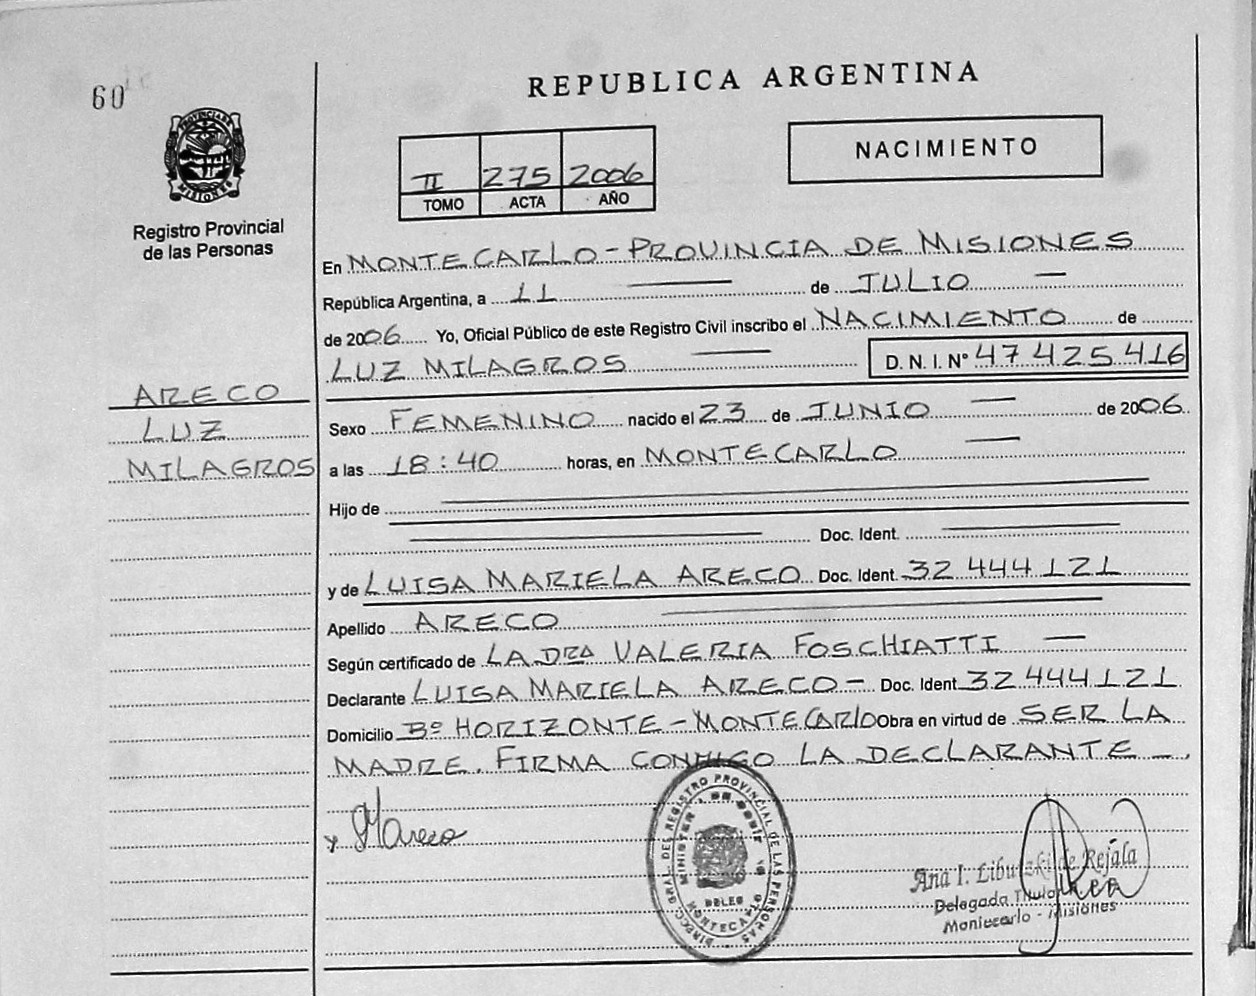 60
REPUBLICA ARGENTINA
PROVINCIA DE MISIONES
Registro Provincial
de las Personas
II 275 2006
TOMO ACTA AÑO
NACIMIENTO
En MONTECARLO - PROVINCIA DE MISIONES
República Argentina, a 11 de JULIO
de 2006 Yo, Oficial Público de este Registro Civil inscribo el NACIMIENTO de
LUZ MILAGROS D. N. I. Nº 47 425 416
ARECO
LUZ
MILAGROS
Sexo FEMENINO nacido el 23 de JUNIO de 2006
a las 18:40 horas, en MONTECARLO
Hijo de
Doc. Ident.
y de LUISA MARIELA ARECO Doc. Ident. 32 444 121
Apellido ARECO
Según certificado de LA DRA VALERIA FOSCHIATTI
Declarante LUISA MARIELA ARECO - Doc. Ident 32 444 121
Domicilio Bº HORIZONTE - MONTECARLO Obra en virtud de SER LA
MADRE. FIRMA CONMIGO LA DECLARANTE -.
DIRECC. GRAL. DEL REGISTRO PROVINCIAL DE LAS PERSONAS
MONTECARLO
Ana I. de Rejala
Delegada Titular
Montecarlo - Misiones